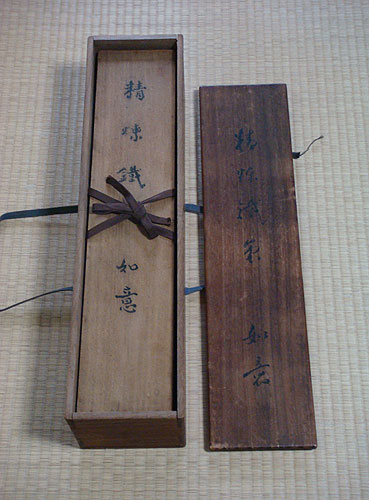 精煉鐵 如意
精煉鐵 如意